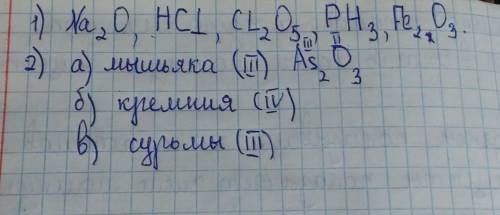 1) Na₂O, HCl, CL₂O₅, PH₃, Fe₂O₃.
2) а) мышьяка (III) As₂O₃ III II
б) кремния (IV)
в) сурьмы (III)